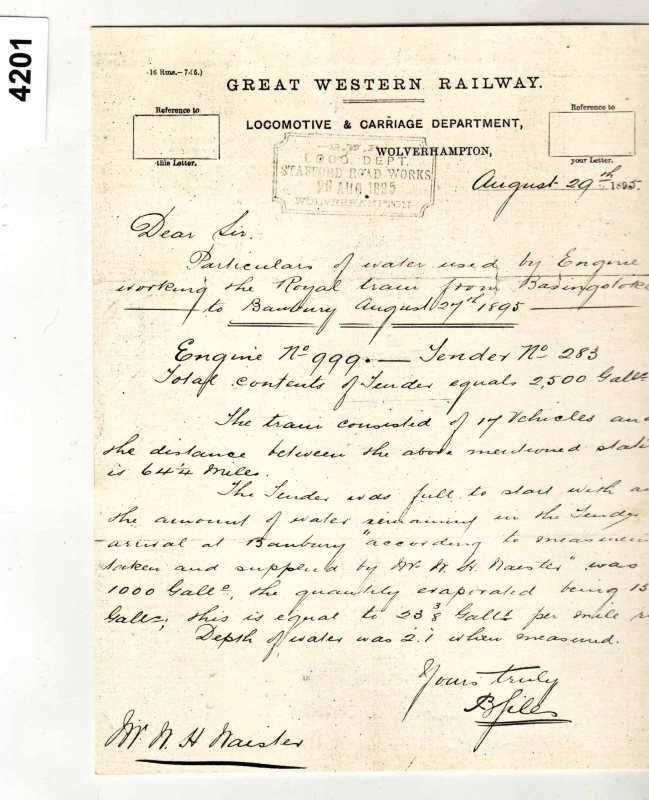 4201
16 Rms.—7-95.)
GREAT WESTERN RAILWAY.
Reference to
this Letter.
LOCOMOTIVE & CARRIAGE DEPARTMENT,
WOLVERHAMPTON,
Reference to
your Letter.
G.W.R.
LOCO. DEPT.
STAFFORD ROAD WORKS
29 AUG 1895
WOLVERHAMPTON
August 29th 1895.
Dear Sir.
Particulars of water used by Engine
working the Royal train from Basingstoke
to Banbury August 27th 1895
Engine No 999. — Tender No 283
Total contents of Tender equals 2,500 Galls
The train consisted of 17 Vehicles and
the distance between the above mentioned stati
is 64¼ Miles.
The Tender was full to start with a
the amount of water remaining in the Tender
arrival at Banbury "according to measurem
taken and supplied by Mr W. H. Waister" was
1000 Galls, the quantity evaporated being 15
Galls; this is equal to 23 3/8 Galls per mile r
Depth of water was 2.1 when measured.
Yours truly
Mr W H Waister